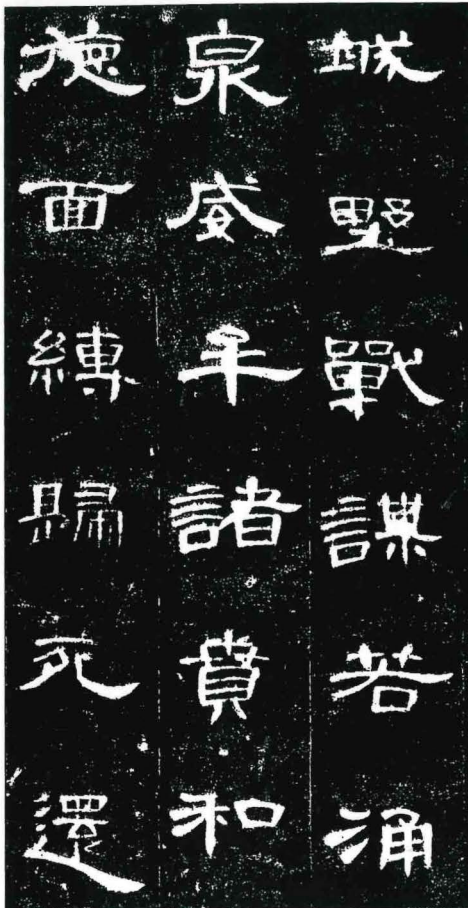 城野戰謀若涌
泉威牟諸賁和
德面縛歸死還